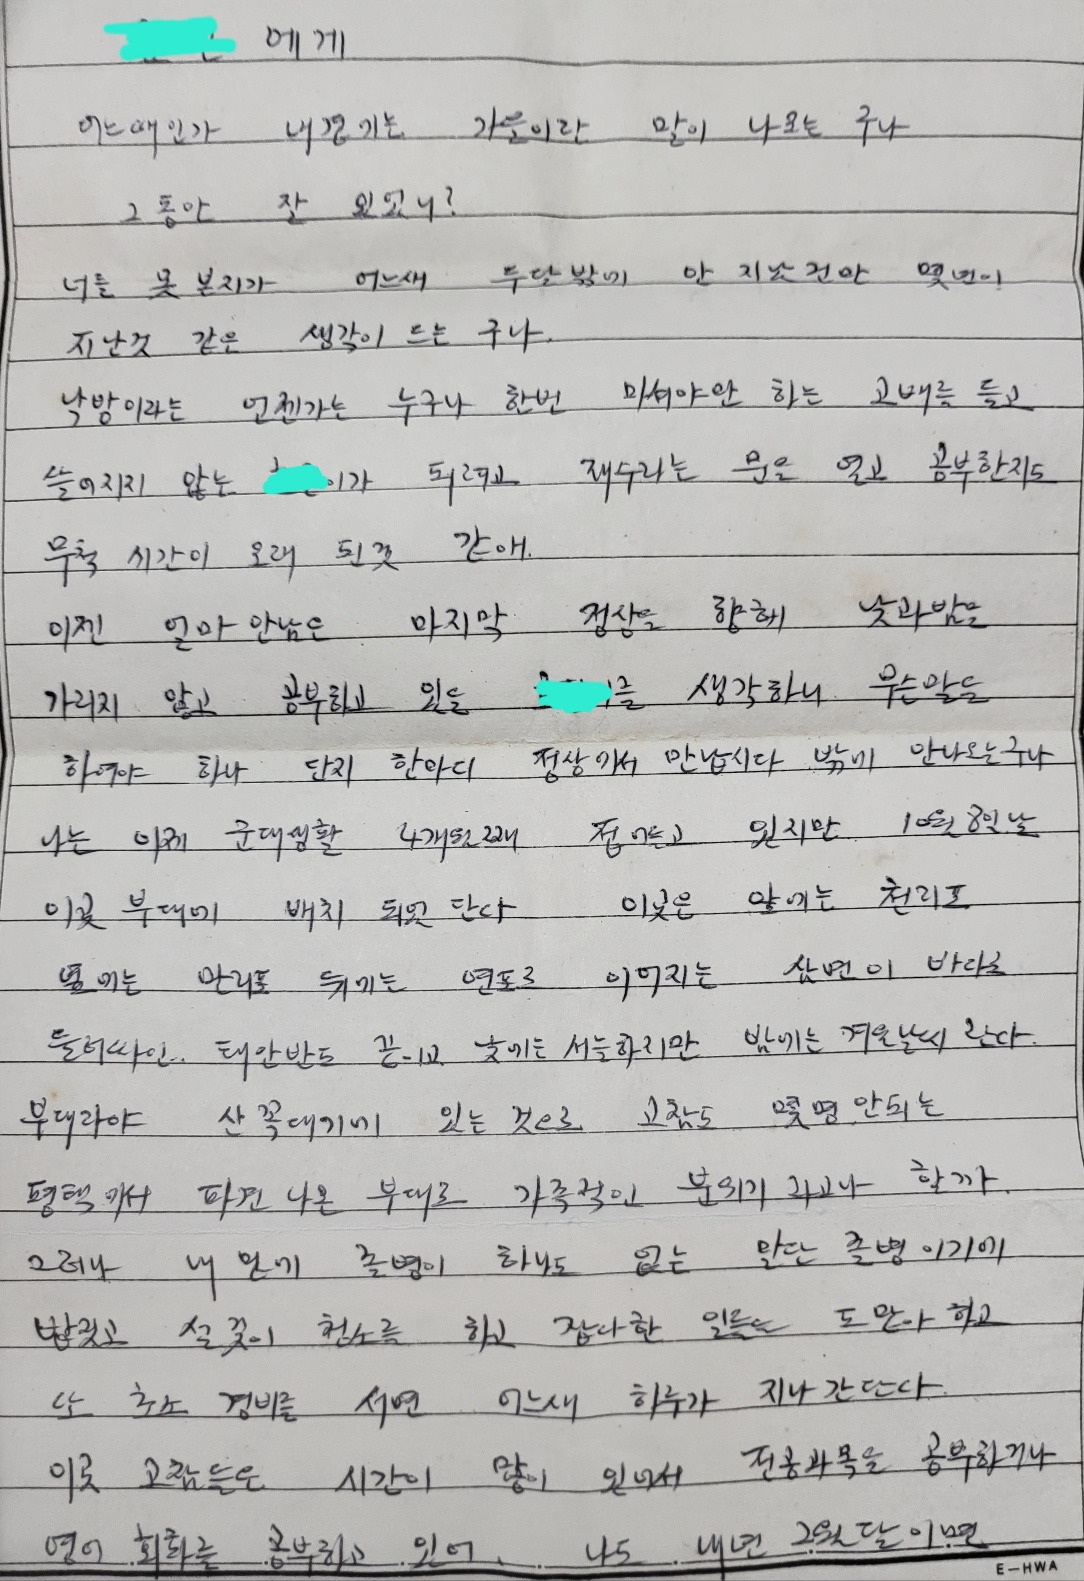 에게
어느때인가 내겐 기는 가을이란 말이 나오는 구나
그동안 잘 있었니?
너를 못 본지가 어느새 두달밖에 안 지난건만 몇년이
지난것 같은 생각이 드는 구나.
낙방이라는 언젠가는 누구나 한번 마셔야만 하는 고배를 들고
쓸어지지 않는 이가 되려고 재수라는 문을 열고 공부한지도
무척 시간이 오래 된것 같애.
이젠 얼마 안남은 마지막 정상을 향해 낮과밤을
가리지 않고 공부하고 있을 를 생각하니 무슨말을
하여야 하나 단지 한마디 정상에서 만납시다 밖에 안나오는구나
나는 이제 군대생활 4개월째 접어들고 있지만 10월 8일날
이곳 부대에 배치 되었단다 이곳은 앞에는 천리포
옆에는 만리포 뒤에는 연포로 이어지는 삼면이 바다로
둘러싸인.. 태안반도 끝이고 낮에는 서늘하지만 밤에는 겨울날씨 란다.
부대라야 산꼭대기에 있는 것으로 고참도 몇명안되는
평택에서 파견 나온 부대로 가족적인 분위기 라고나 할까.
그러나 내 밑에 졸병이 하나도 없는 말단 졸병 이기에
밥짓고 설겆이 청소를 하고 잡다한 일들을 도맡아 하고
또 초소 경비를 서면 어느새 하루가 지나 간단다.
이곳 고참들은 시간이 많이 있어서 전공과목을 공부하거나
영어 회화를 공부하고 있어. 나도 내년 2월달이면
E-HWA